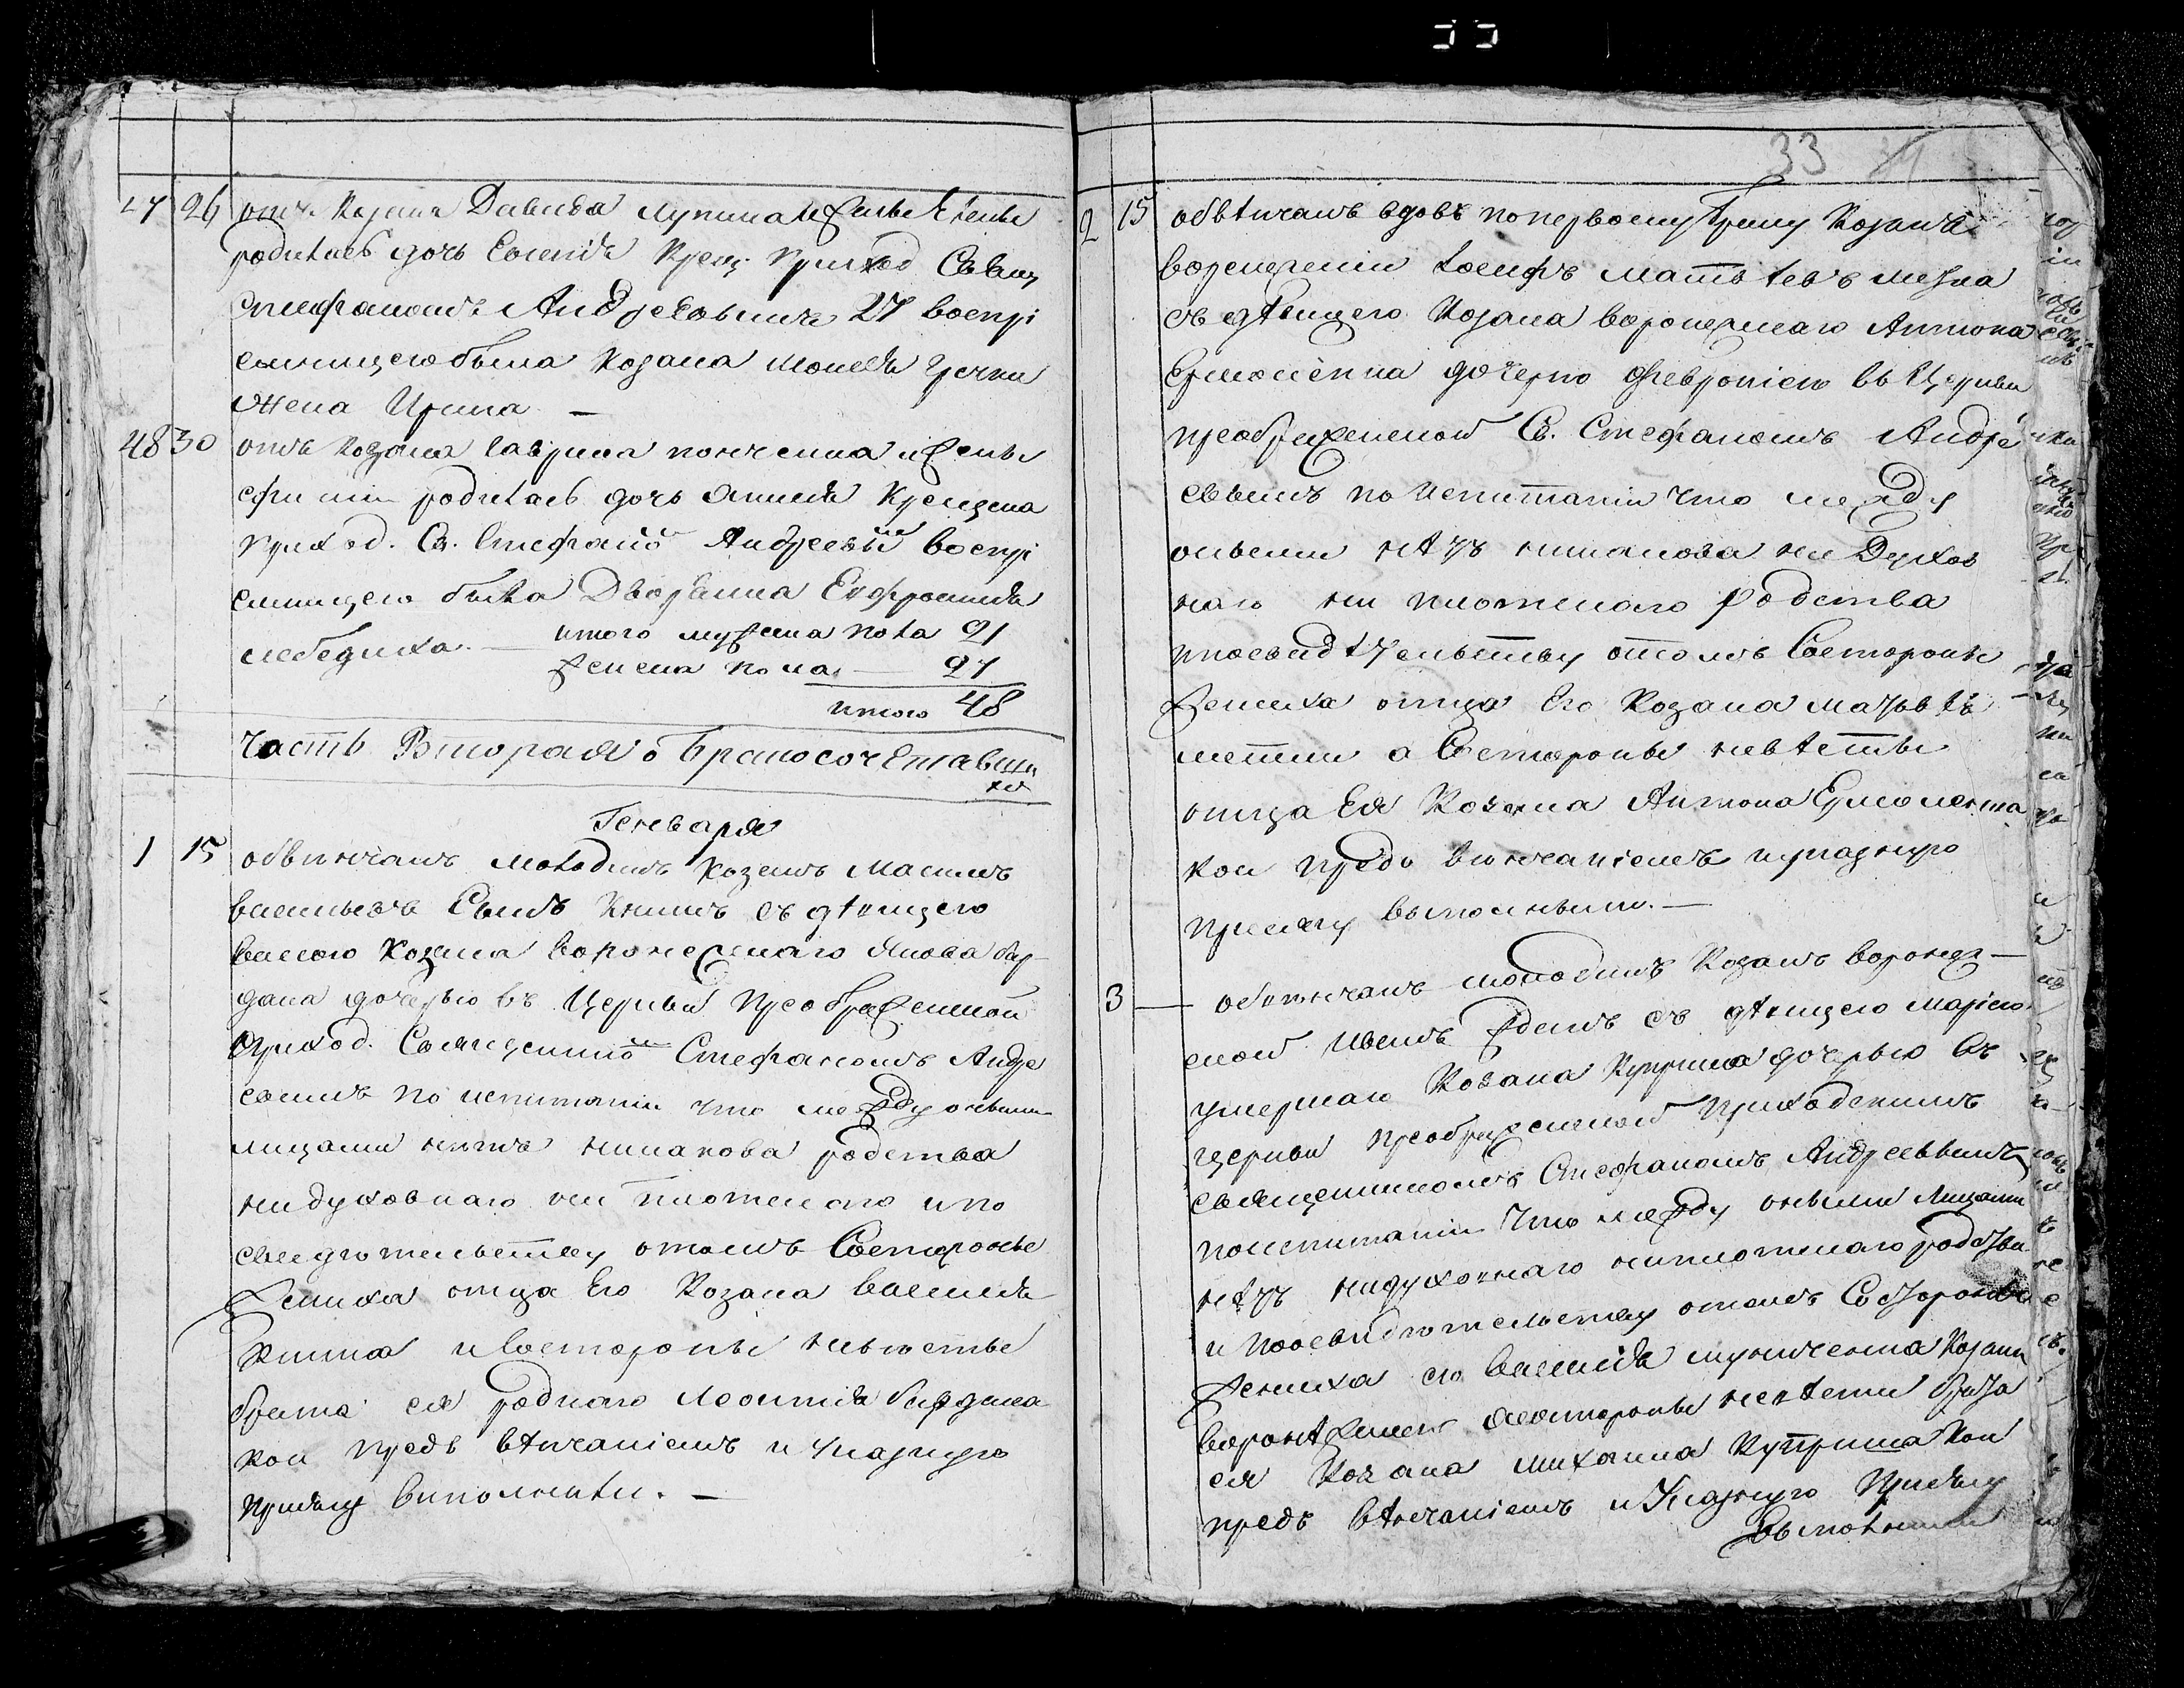 47 26 отъ Козака Давида Лупина и жены Елены
родилась дочь Евгенія Крещ. Приход Свящ
Стефаномъ Андреевымъ 27 воспрі
емницею была Козака Моисея Гречки
жена Ирина —
48 30 отъ Козака Гаврила и жены
родилась дочь Крещена
приход. Св. Стефано Андреевы воспрі
емницею была Дворянка Евфросинія
Лебедиха. — итого мужеска пола 21
женска пола — 27
итого 48
Часть Вторая о бракосочетавши
хся
Генваря
1 15 обвѣнчанъ молодикъ Козакъ Максимъ
Васильевъ Сынъ Книшъ съ дѣвицею
Козака воронежскаго Якова бар
дака дочерью въ Церкви Преображенской
Приход. Священнико Стефаномъ Андре
евымъ по испитаніи что между оными
лицами нѣтъ никакова родства
ни духовнаго ни плотскаго и по
свидѣтельству о томъ Состороны
Жениха отца Его Козака Василія
Книша и Состороны невѣсты
брата ея роднаго Леонтія бардака
кои предъ вѣнчаніемъ и Указную
присягу выполнили. —
33
2 15 обвѣнчанъ вдовъ по первому браку Козакъ
воронежскій Іосифъ Матвѣевъ
съ дѣвицею Козака воронежскаго Антона
Ермоленка дочерью Февроніею въ Церкви
преображенской Св. Стефаномъ Андре
евымъ по испитаніи что между
оными нѣтъ никакова ни Духов
наго ни плотскаго родства
и посвидѣтельству о томъ Состороны
Жениха отца Его Козака Матвѣя
а Состороны невѣсты
отца Ея Козака Антона Ермоленка
кои предъ вѣнчаніемъ и указную
присягу выполнили. —
3 — обвѣнчанъ молодикъ Козакъ воронеж—
ской Иванъ съ дѣвицею Маріею
умершаго Козака Куприка дочерью въ
церкви преображенской Приходскимъ
священникомъ Стефаномъ Андреевымъ
поиспитаніи что между оными Лицами
нѣтъ нидуховнаго ниплотскаго родства
и посвидѣтельству о томъ Состороны
Жениха его Василія Козака
Состороны невѣсты брата
ея Козака Михаила Куприка Кои
предъ вѣнчаніемъ и Указную Присягу
выполнили